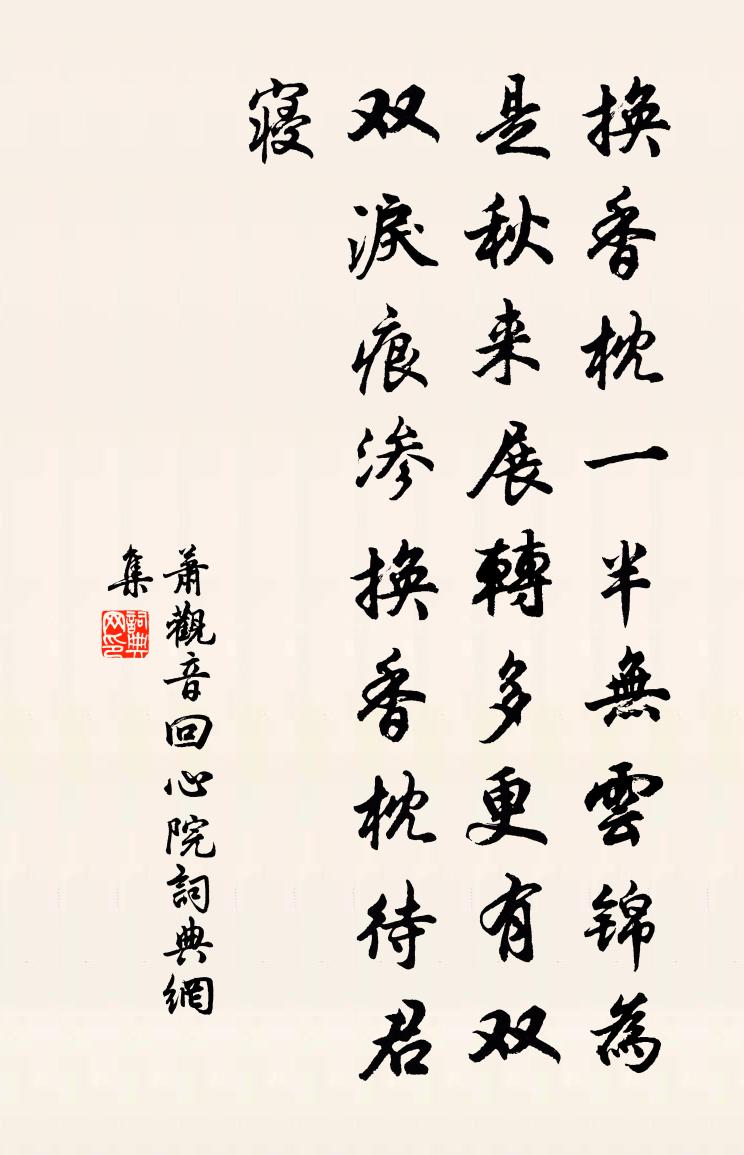 換香枕一半無雲锦為
是秋来展轉多更有双
双淚痕渗換香枕待君
寢
蕭觀音回心院詞典網
集
詞典
网印